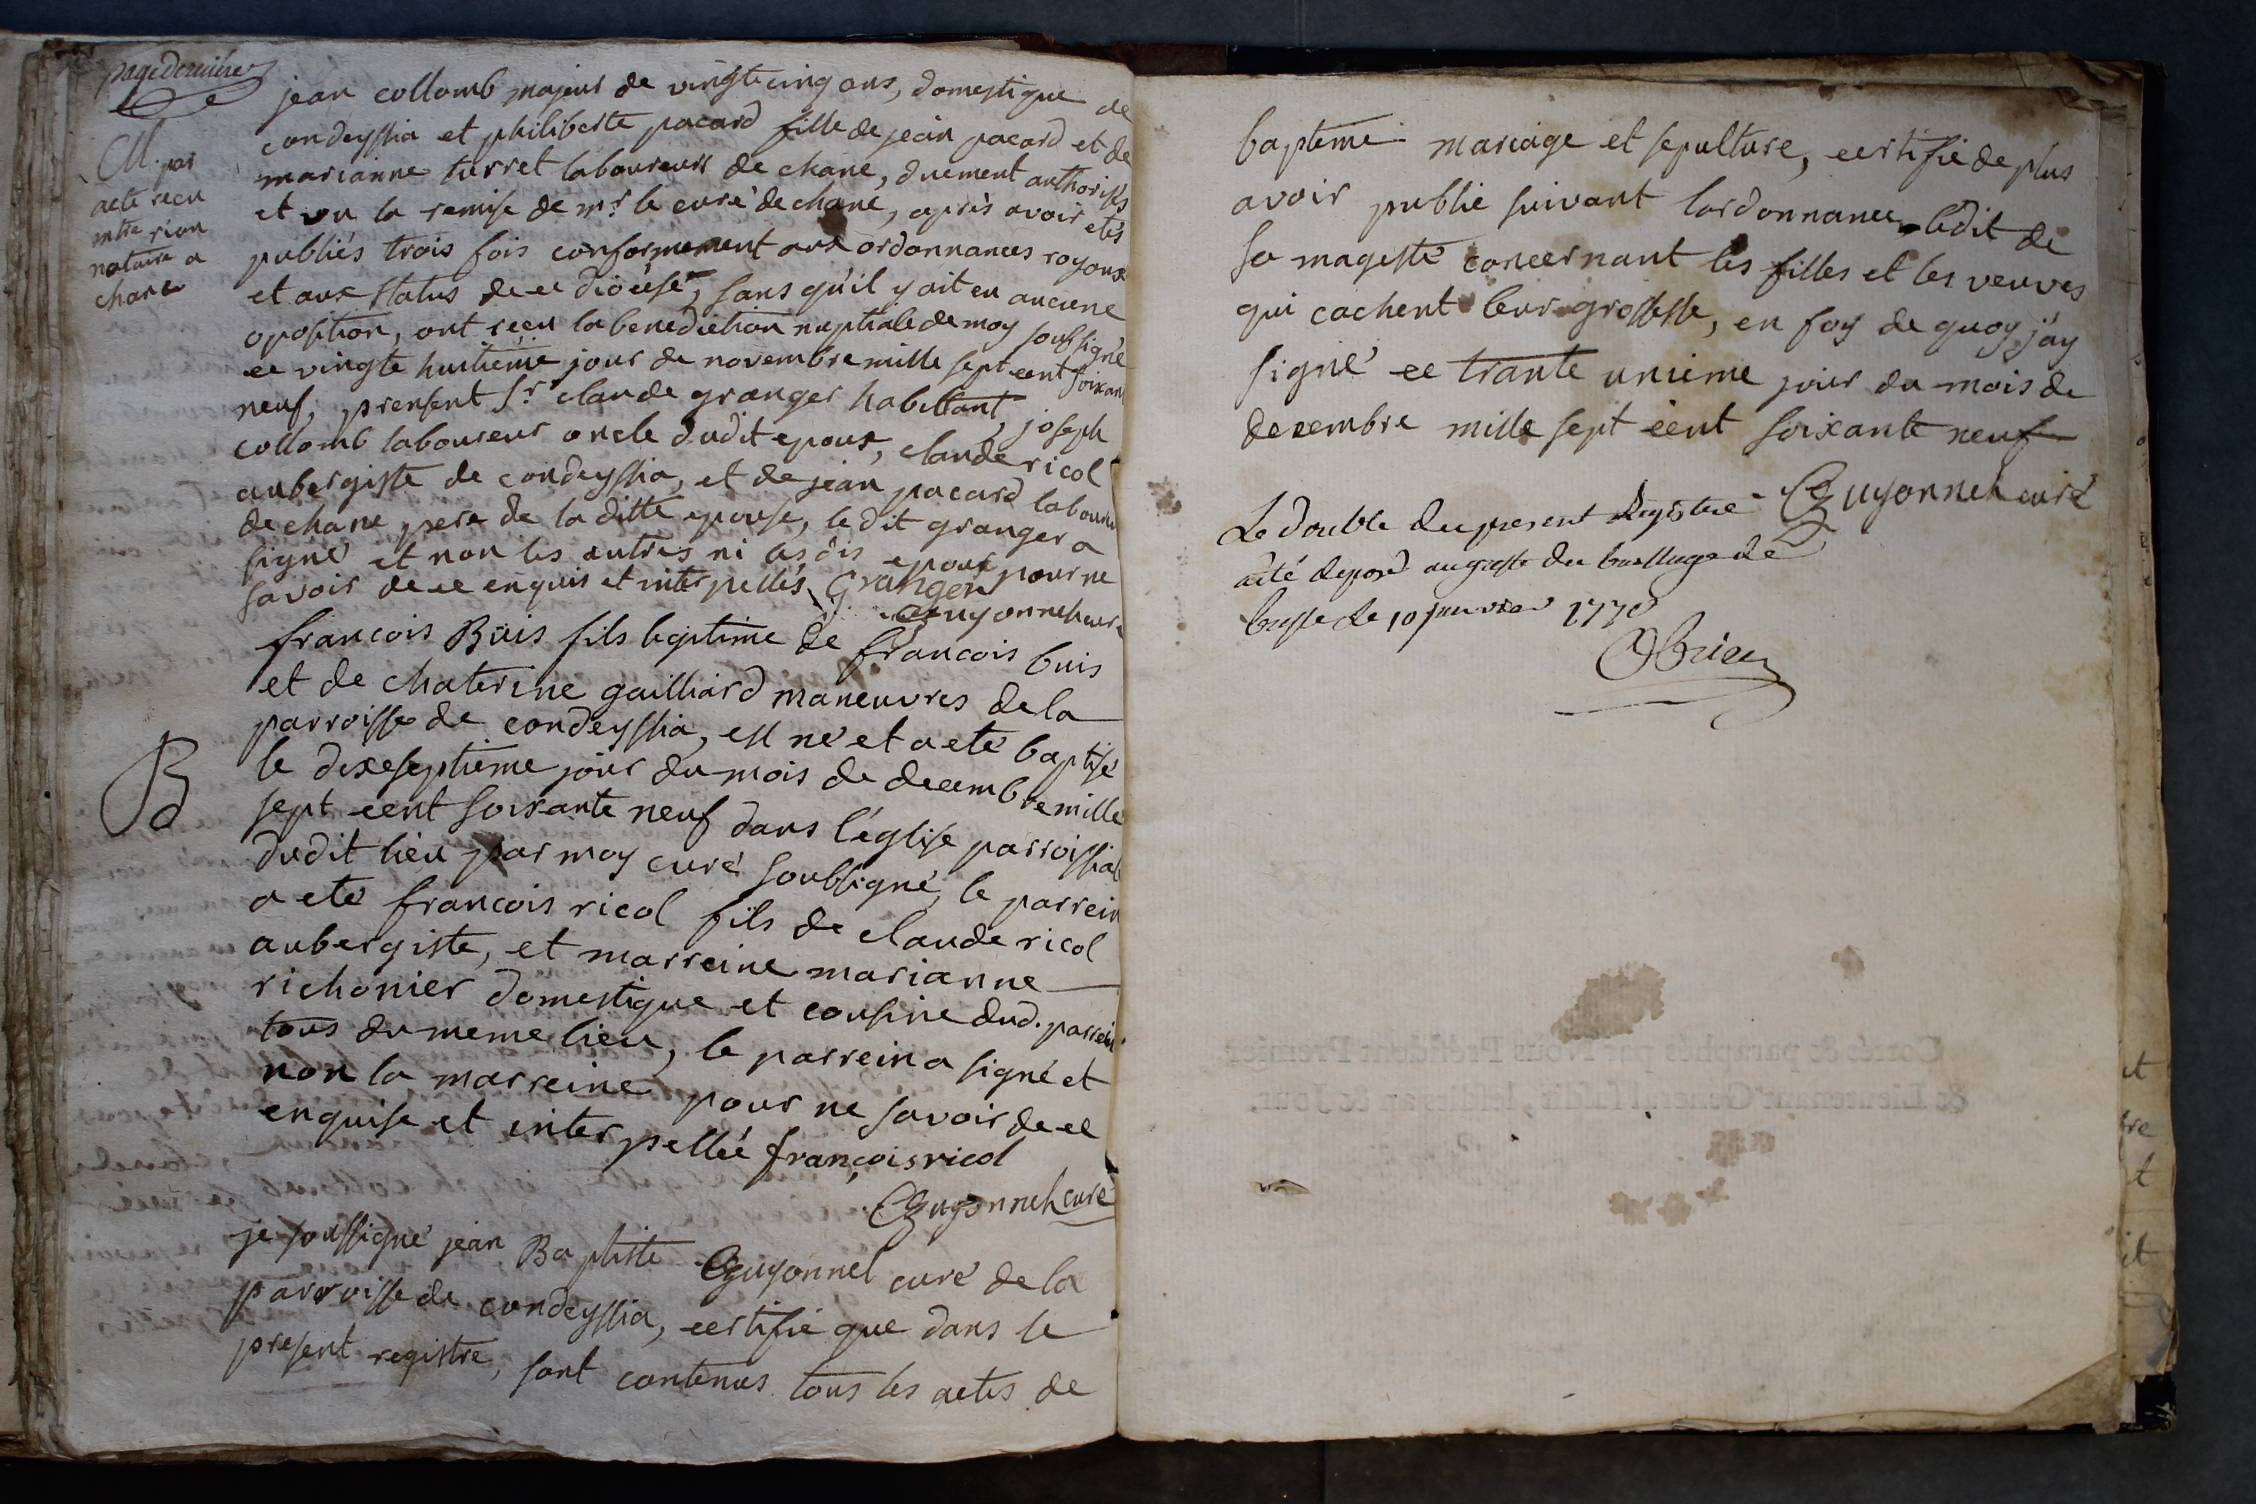 page derniere
jean collomb majeur de vingte cinq ans, domestique de
condeyssia et philiberte pacard fille de jean pacard et de
marianne turret laboureurs de chane, duement authorisés
et vu la remise de mr. le curé de chane, après avoir etés
publiés trois fois conformement aux ordonnances royaux
et aux status de ce diocese, sans qu'il y ait eu aucune
oposition, ont recu la benediction nuptiale de moy soussigné
ce vingte huitième jour de novembre mille sept cent soixan
neuf, prensent Sr. claude granger habittant, joseph
collomb laboureur oncle dudit epoux, claude ricol
aubergiste de condeyssia, et de jean pacard laboureur
de chane pere de la ditte epouse, le dit granger a
signé et non les autres ni les dis epoux pour ne
savoir de ce enquis et interpellés Granger
Guyonnel curé
M. par
acte recu
mtre rion
notaire a
chane
francois Buis fils legitime de francois buis
et de chaterine gailliard maneuvres de la
parroisse de condeyssia, est né et a eté baptisé
le dixeseptieme jour du mois de decembre mille
sept cent soixante neuf dans l'église parroissial
dudit lieu par moy curé soubsigné, le parrein
a eté francois ricol fils de claude ricol
aubergiste, et marreine marianne
richonier domestique et cousine dud. parrein
tous du meme lieu, le parrein a signé et
non la marreine pour ne savoir de ce
enquise et interpellée françois ricol
Guyonnel curé
B
je soussigné jean Baptiste Guyonnel curé de la
parroisse de condeyssia, certifie que dans le
present registre, sont contenus tous les actes de
bapteme mariage et sepulture, certifie de plus
avoir publié suivant lordonnance ledit de
sa magesté concernant les filles et les veuves
qui cachent leur grossesse, en foy de quoy j'ay
signé ce trante unieme jour du mois de
decembre mille sept cent soixante neuf
Guyonnel curé
Le double du present Registre
a été deposé au greffe du bailliage de
bresse le 10 janvier 1770
Cotés & paraphés par Nous Président Premier
& Lieutenant Général susdit, lesdits an & jour.